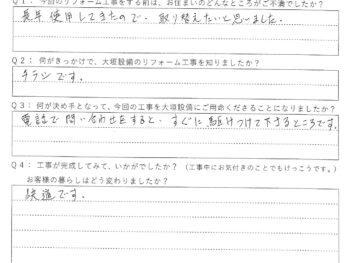 Q1：今回のリフォーム工事をする前は、お住まいのどんなところがご不満でしたか？
長年使用してきたので、取り替えたいと思いました。
Q2：何がきっかけで、大垣設備のリフォーム工事を知りましたか？
チラシです。
Q3：何が決め手となって、今回の工事を大垣設備にご用命くださることになりましたか？
電話で問い合わせをすると、すぐに駆けつけて下さるところです。
Q4：工事が完成してみて、いかがでしたか？（工事中にお気付きのことでもけっこうです。）
お客様の暮らしはどう変わりましたか？
快適です。